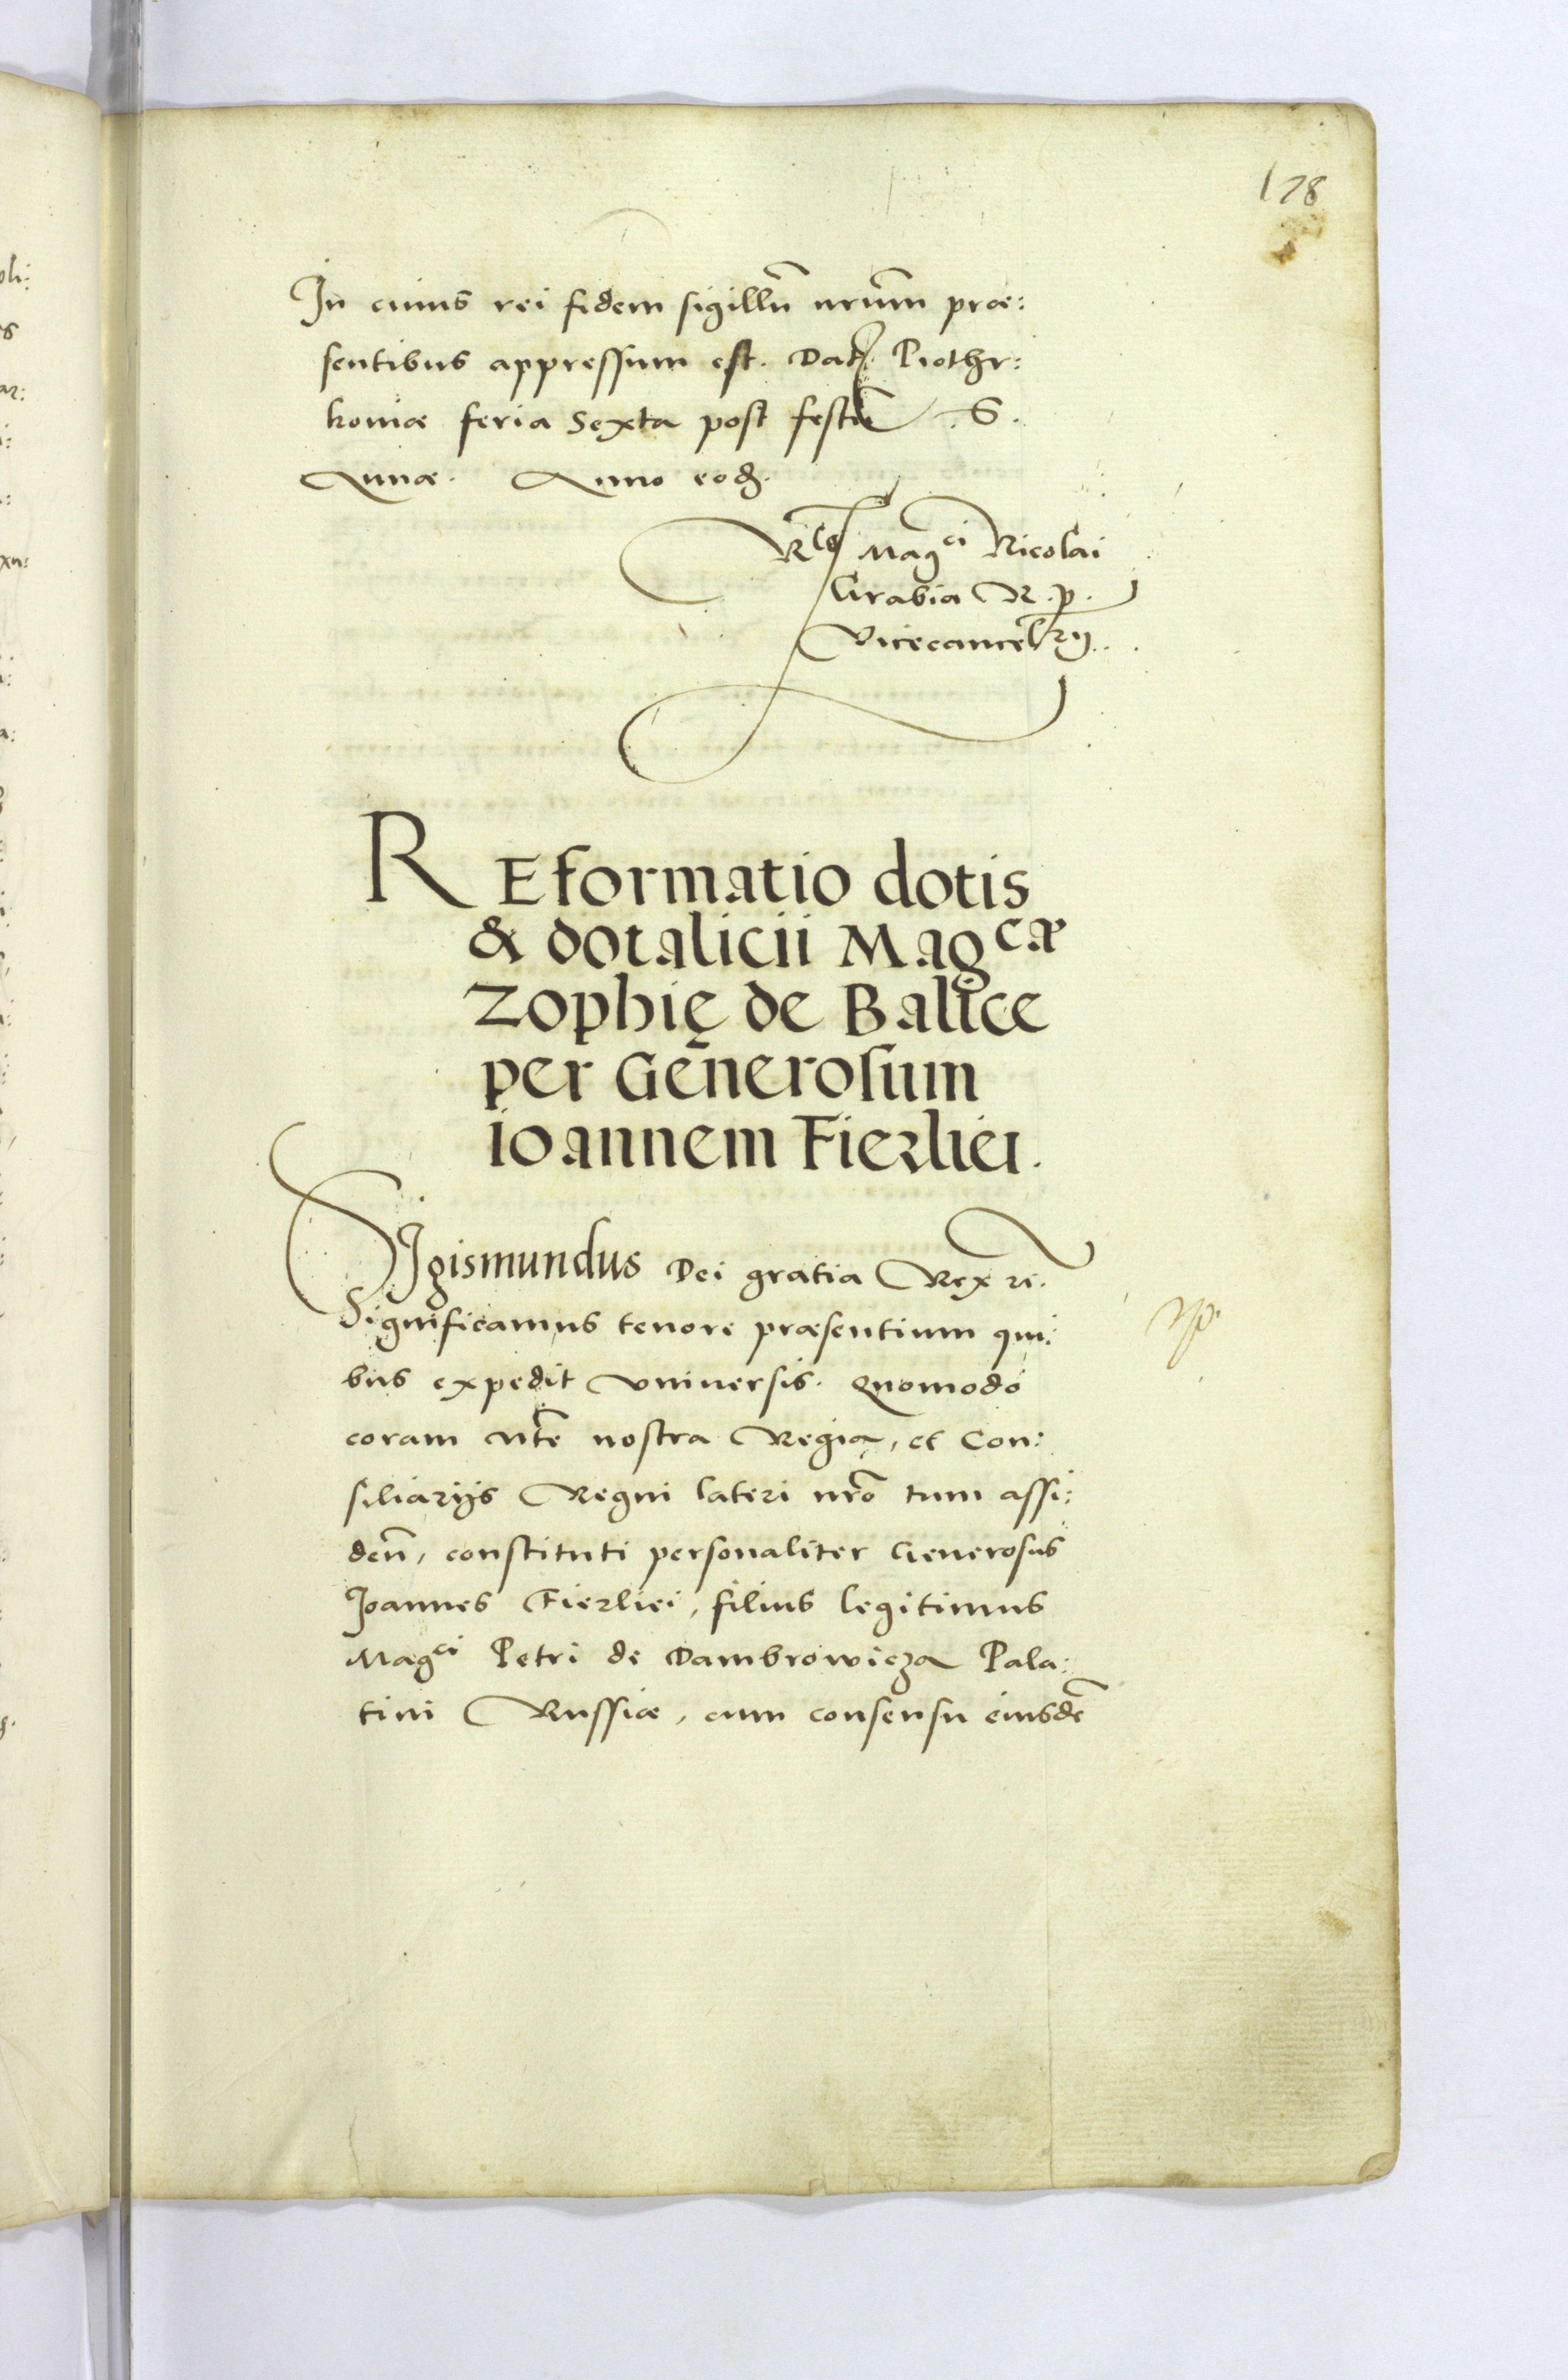 178
In cuius rei fidem sigillū nr̄um præ:
sentibus appressum est. Dat. Piothr:
koviæ feria Sexta post festū .S.
Annæ. Anno eod.
Rlo Mag^ci Nicolai
Grabia R. p.
Vicecancelrij.
REformatio dotis
& dotalicii Mag^cæ
Zophię de Balice
per Generosum
ioannem Fierliei.
SIgismundus Dei gratia Rex rc.
Significamus tenore præsentium qui:
bus expedit vniversis. Quomodo
coram Mte nostra Regia, et Con:
siliarijs Regni lateri nr̄o tum assi:
deñ, constituti personaliter Generosus
Joannes Fierliei, filius legitimus
Mag^ci Petri de Dambrowicza Pala:
tini Russiæ, cum consensu eiusdē